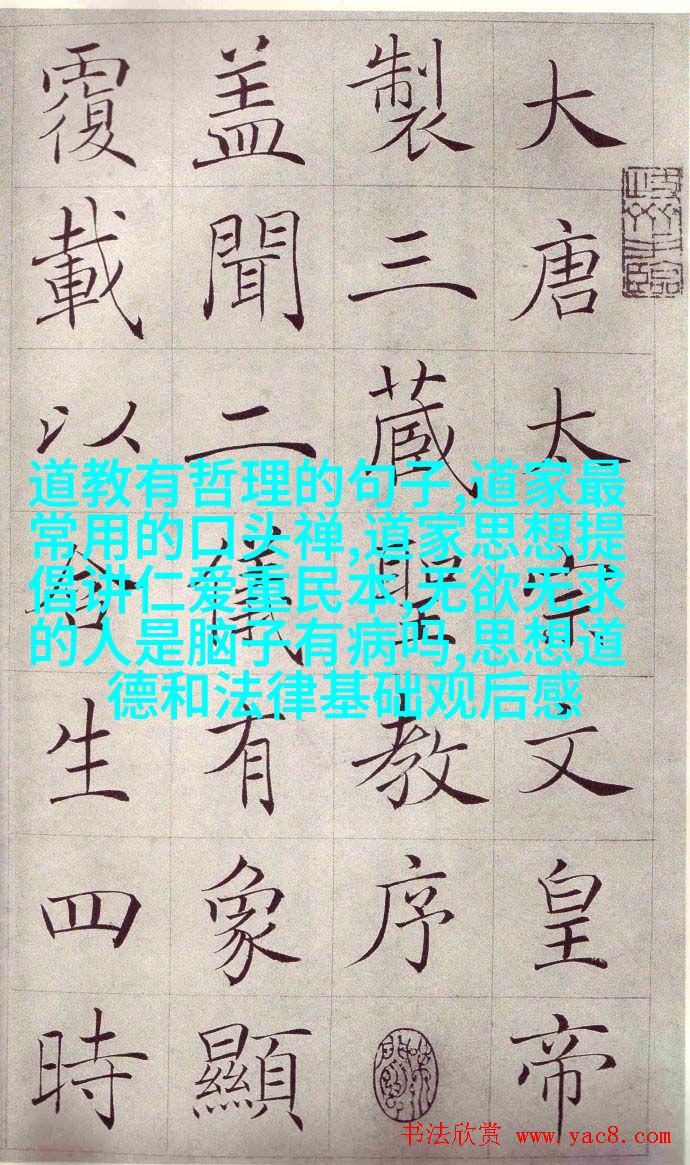 大唐太宗文皇帝
製三藏聖教序
盖聞二儀有象顯
覆載以含生四時
道教有哲理的句子,道家最
常用的口头禅,道家思想提
倡讲仁爱重民本,无欲无求
的人是脑子有病吗,思想道
德和法律基础观后感
书法欣赏 www.yac8.com